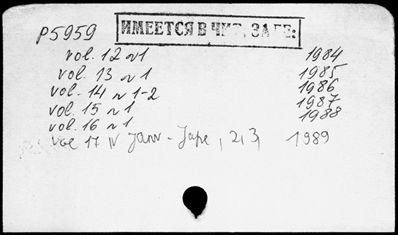 P5959
ИМЕЕТСЯ В ЧИТ. ЗАЛЕ:
vol. 12 N1 1984
vol. 13 N 1 1985
vol. 14 N 1-2 1986
vol. 15 N 1 1987
vol. 16 N 1 1988
vol 17 N 2, 3, 1989